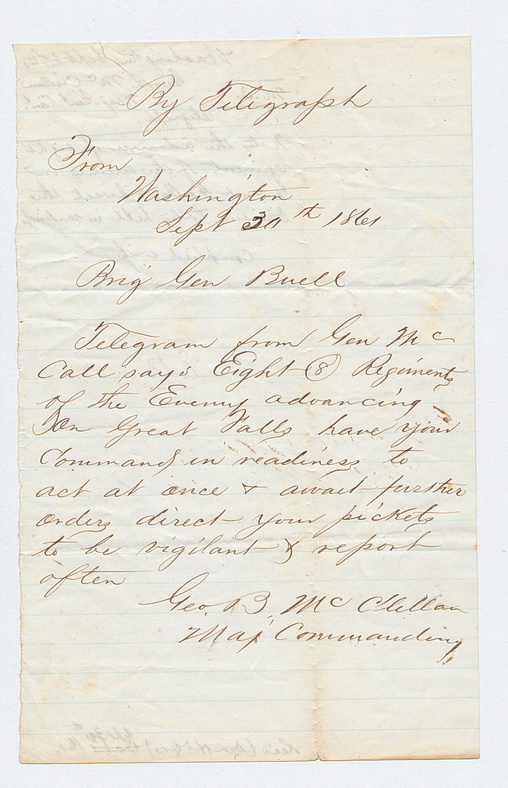 By Telegraph
From
Washington
Sept 30th 1861
Brig Gen Buell
Telegram from Gen Mc
Call says Eight (8) Regiments
of the Enemy advancing
on Great Falls have your
Command in readiness to
act at once & await further
orders direct your pickets
to be vigilant & report
often
Geo. B. McClellan
Maj Commanding